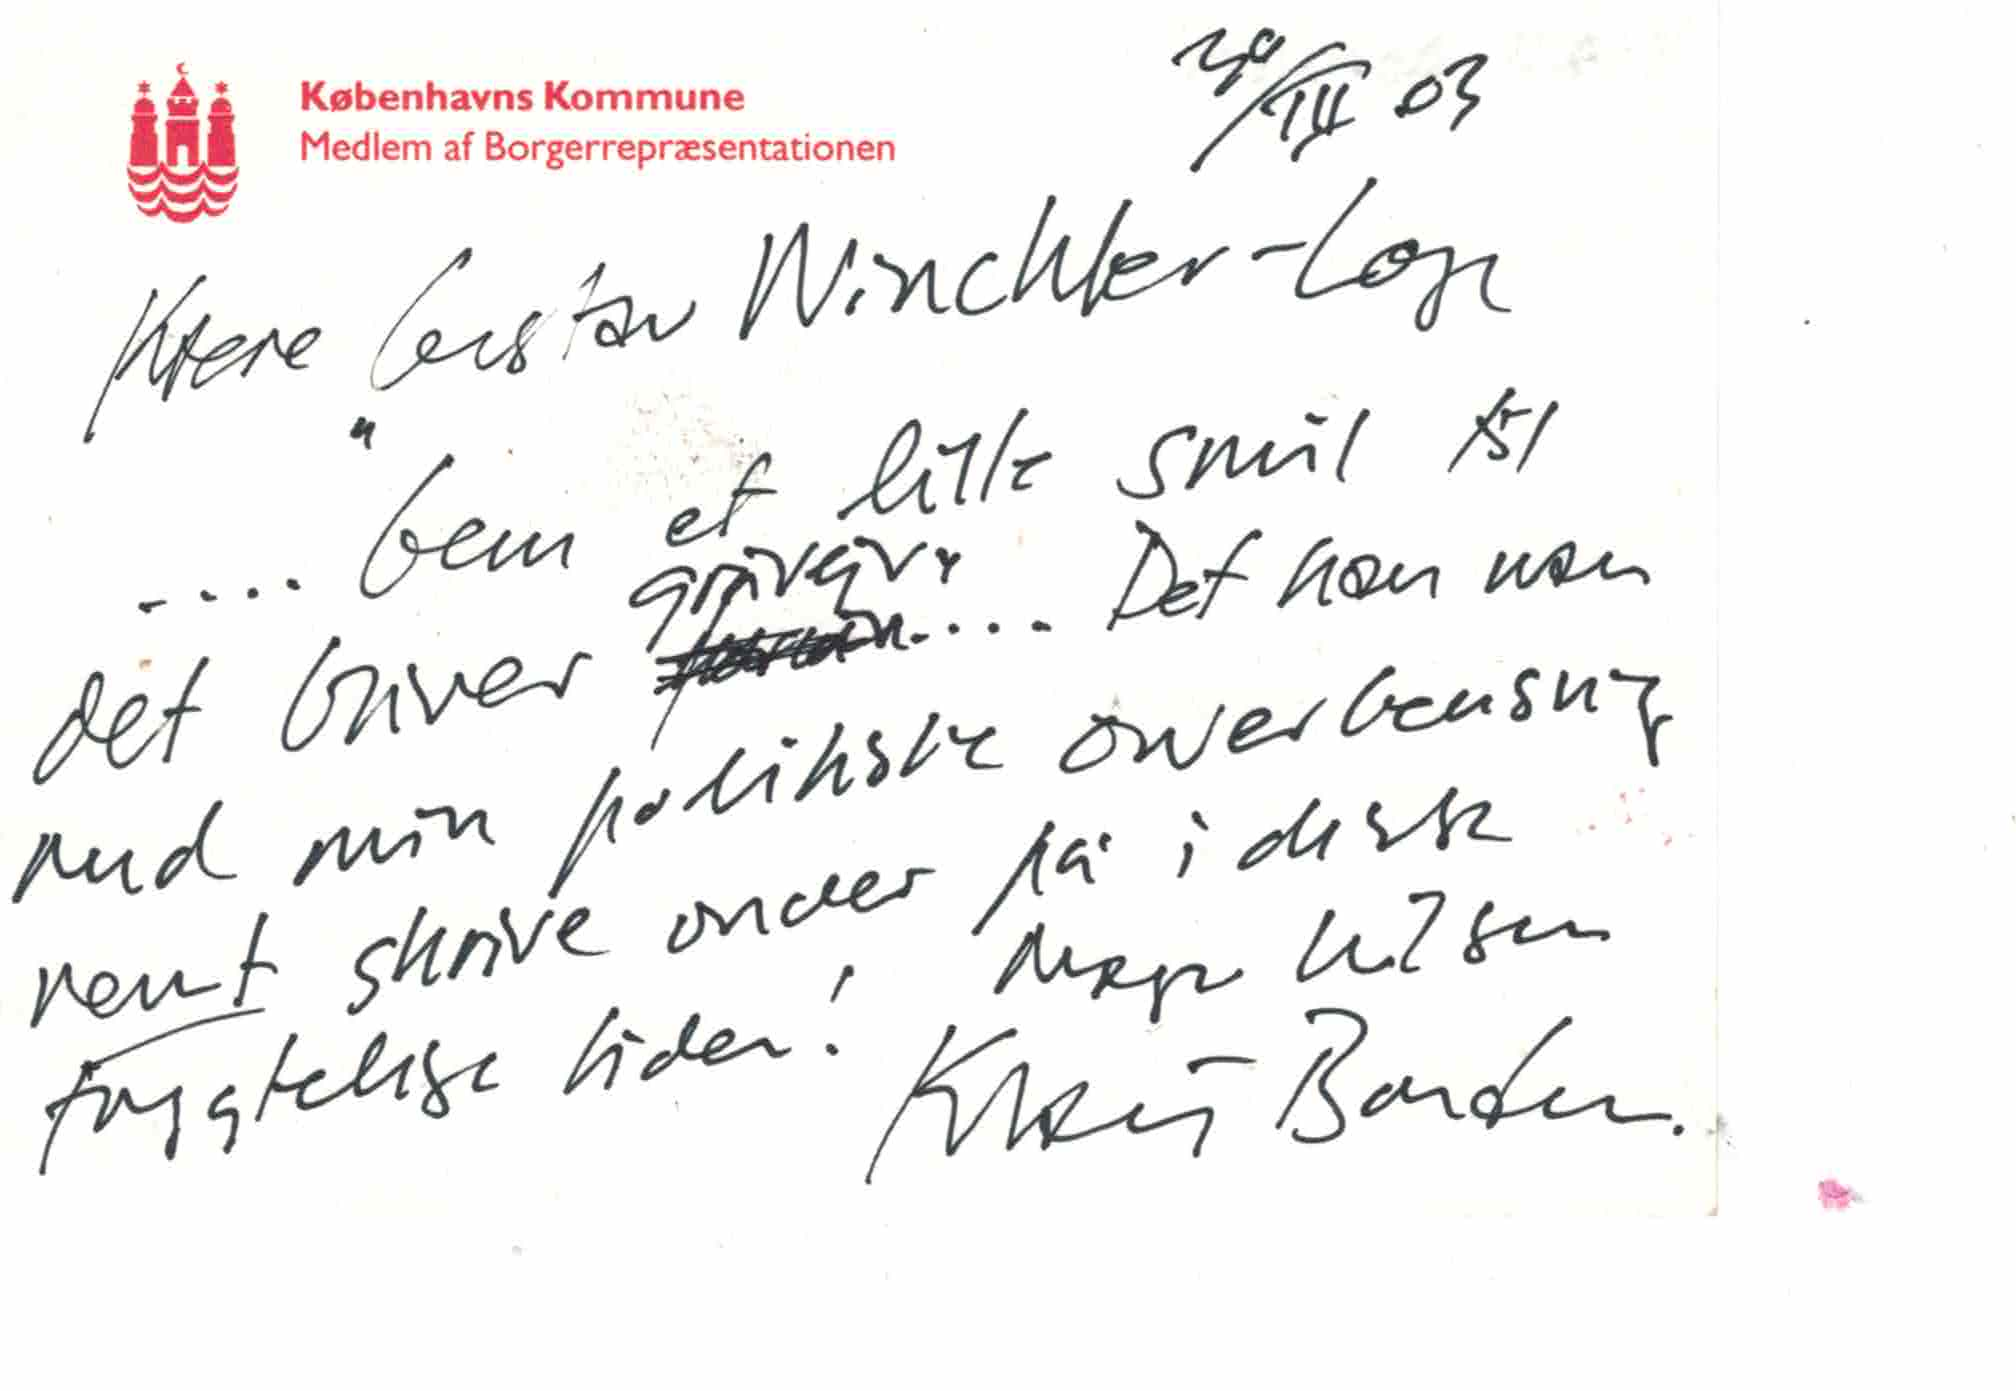 Københavns Kommune
Medlem af Borgerrepræsentationen
30/III 03
Kære Gustav Winckler-Loge
".... Gem et lille smil til
det bliver gråvejr" .... Det kan man
med min politiske overbevisning
nemt skrive under på i disse
frygtelige tider! Mange hilsen
Klaus Bondam.